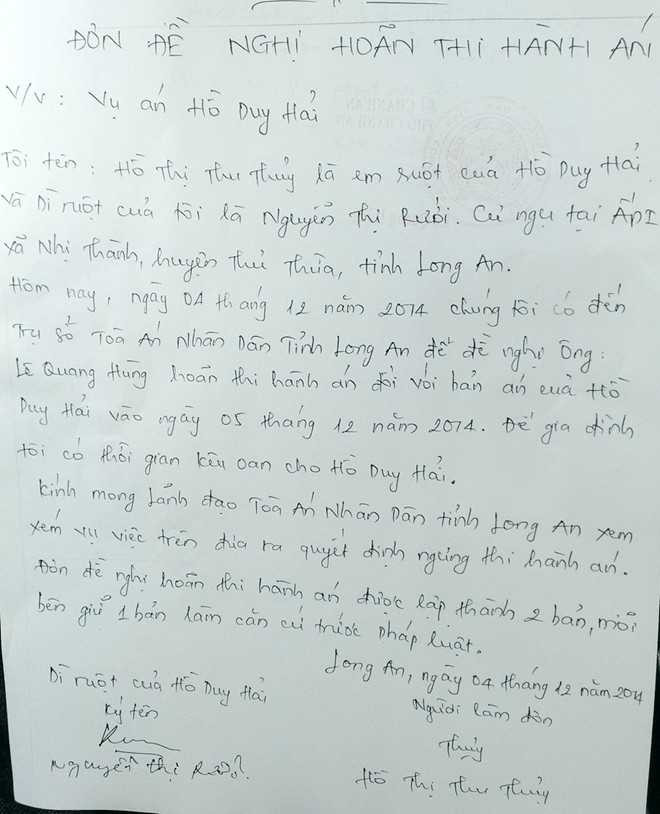 ĐƠN ĐỀ NGHỊ HOÃN THI HÀNH ÁN
V/v: Vụ án Hồ Duy Hải
Tôi tên: Hồ Thị Thu Thủy là em ruột của Hồ Duy Hải
và Dì ruột của tôi là Nguyễn Thị Rưởi. Cư ngụ tại Ấp I
xã Nhị Thành, huyện Thủ Thừa, tỉnh Long An.
Hôm nay, ngày 04 tháng 12 năm 2014 chúng tôi có đến
Trụ sở Toà Án Nhân Dân Tỉnh Long An để đề nghị Ông:
Lê Quang Hùng hoãn thi hành án đối với bản án của Hồ
Duy Hải vào ngày 05 tháng 12 năm 2014. Để gia đình
tôi có thời gian kêu oan cho Hồ Duy Hải.
Kính mong Lãnh đạo Toà Án Nhân Dân tỉnh Long An xem
xém vụ việc trên đưa ra quyết định ngưng thi hành án.
Đơn đề nghị hoãn thi hành án được lập thành 2 bản, mỗi
bên giữ 1 bản làm căn cứ trước pháp luật.
Long An, ngày 04 tháng 12 năm 2014
Dì ruột của Hồ Duy Hải
Người làm đơn
Ký tên
Thủy
Nguyễn Thị Rưởi
Hồ Thị Thu Thủy